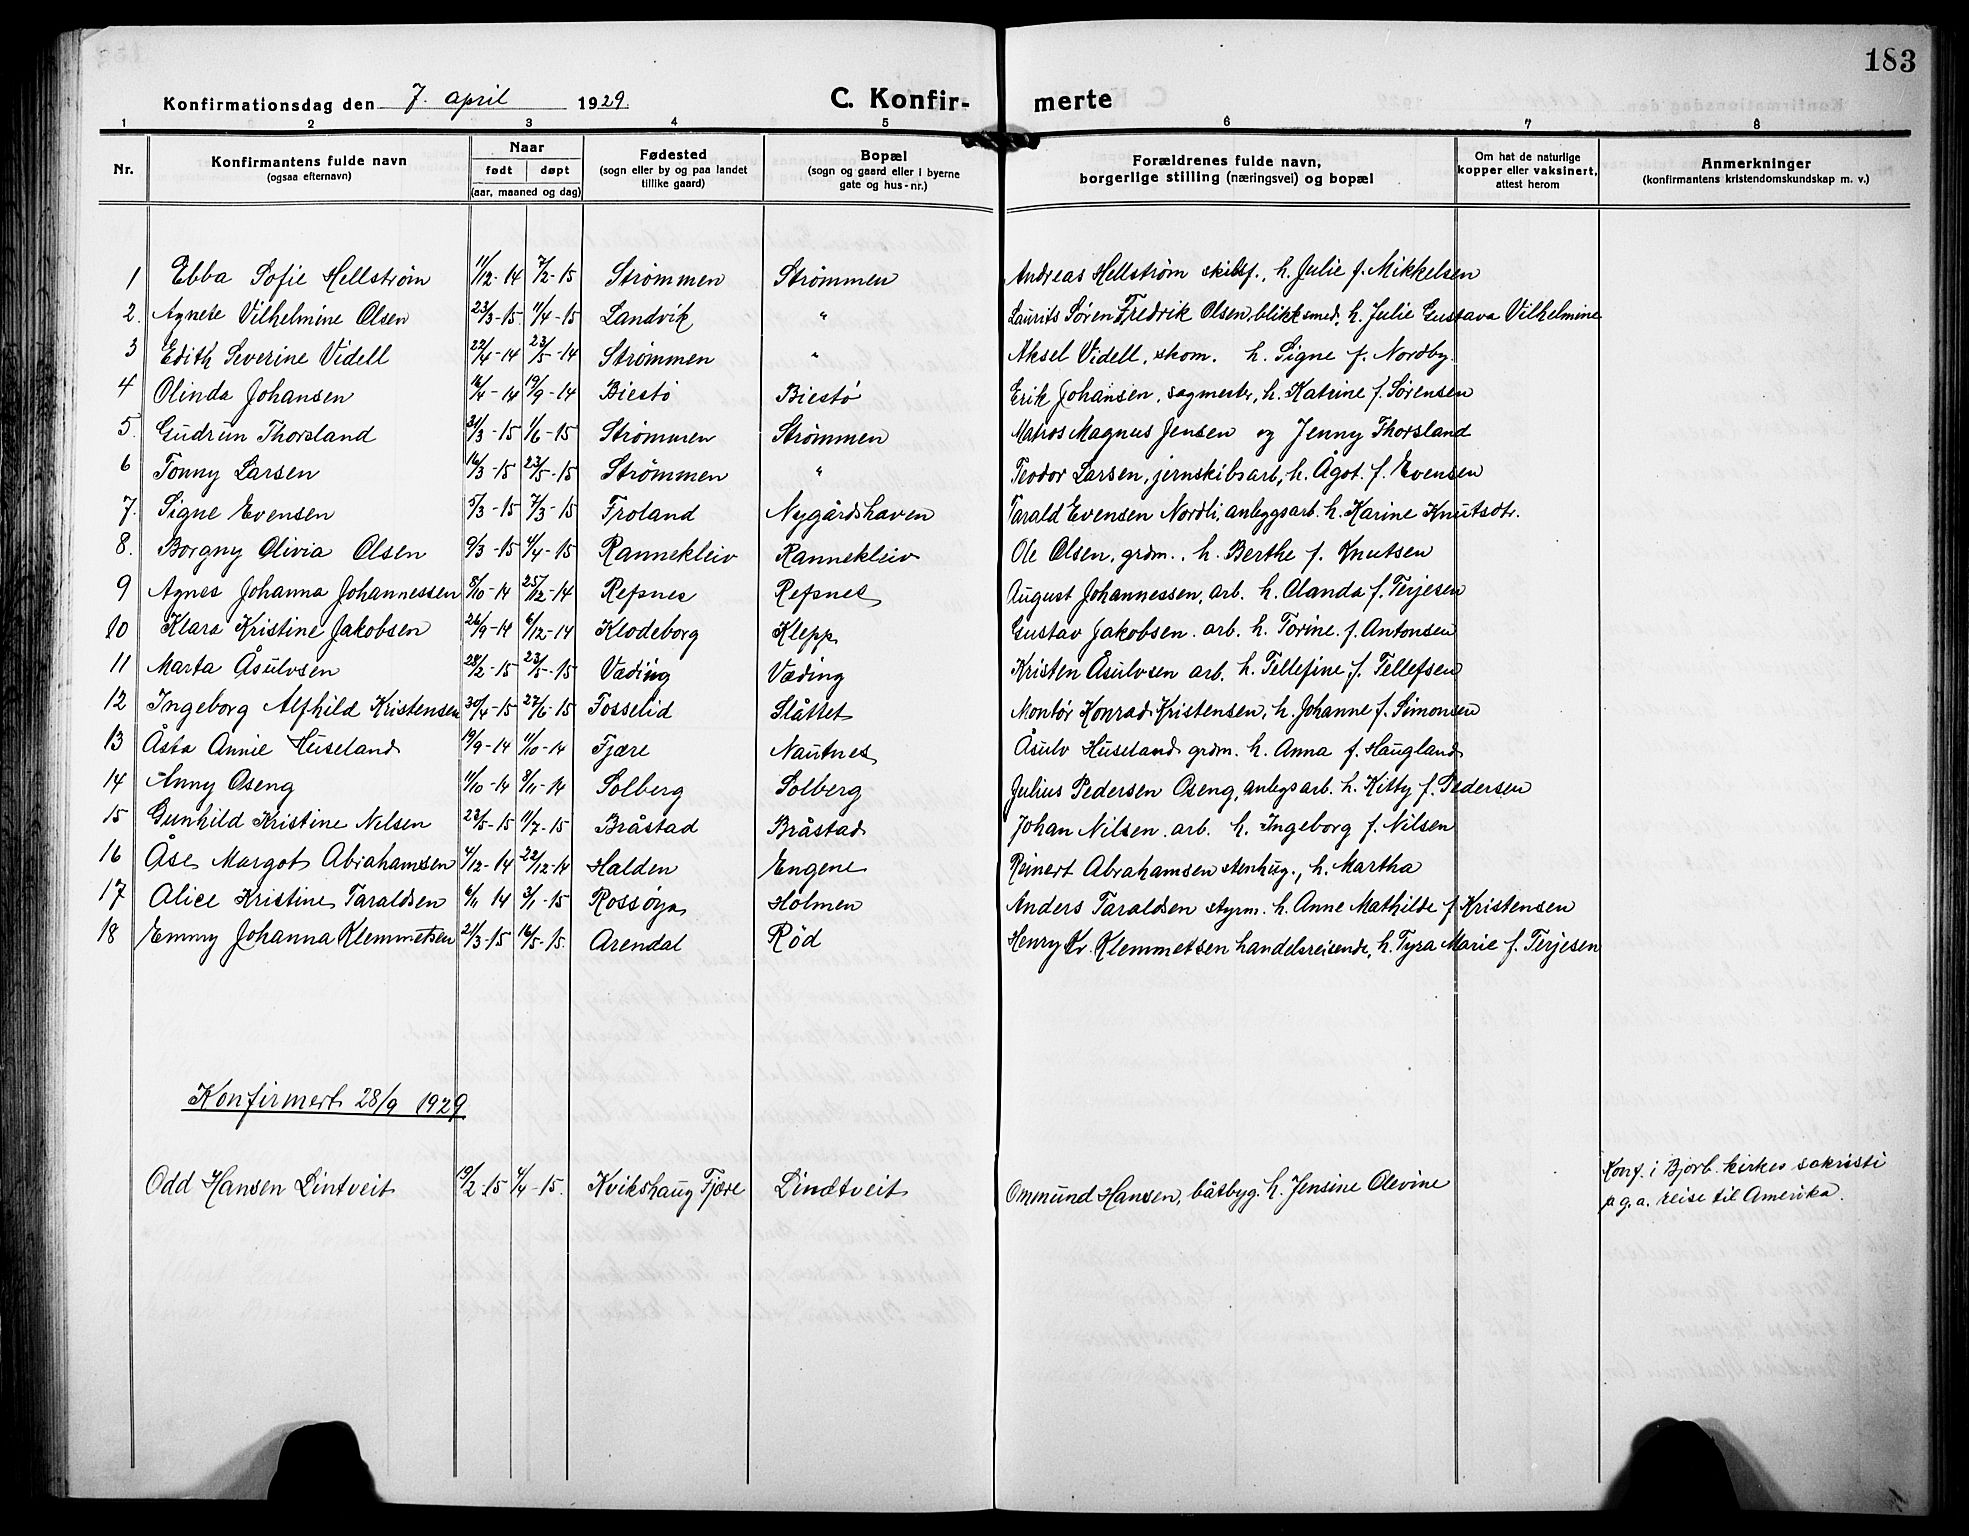 183
Konfirmationsdag den 7. april 1929. C. Konfir- merte
1 2 3 4 5 6 7 8
Nr. Konfirmantens fulde navn (ogsaa efternavn) Naar født døpt (aar, maaned og dag) Fødested (sogn eller by og paa landet tillike gaard) Bopæl (sogn og gaard eller i byerne gate og hus-nr.) Forældrenes fulde navn, borgerlige stilling (næringsvei) og bopæl Om hat de naturlige kopper eller vaksinert, attest herom Anmerkninger (konfirmantens kristendomskundskap m. v.)
1 Ebba Sofie Hellstrøm 11/12-14 7/2-15 Strømmen Strømmen Andreas Hellstrøm skibsf., h. Julie f. Mikkelsen
2. Agnete Vilhelmine Olsen 23/3-15. 11/4-15 Landvik " Laurits Søren Fredrik Olsen, blikksmed, h. Julie Gustava Vilhelmine
3 Edith Severine Videll 22/4-14 23/5-14 Strømmen " Aksel Videll, skom. h. Signe f. Nordby.
4 Olinda Johansen 16/4-14 19/9-14 Biestø Biestø Erik Johansen, sagmestr, h. Katrine f. Sørensen
5. Gudrun Thorsland 31/3-15 1/6-15 Strømmen Strømmen Matros Magnus Jensen og Jenny Thorsland
6 Tonny Larsen 16/3-15 23/5-15 Strømmen " Teodor Larsen, jernskibsarb, h. Ågot f. Evensen
7. Signe Evensen 5/3-15 7/3-15 Froland Nygårdshaven Tarald Evensen Nordli, anleggsarb. h. Karine Knutsdtr.
8. Borgny Olivia Olsen 9/3-15 4/4-15 Rannekleiv Rannekleiv Ole Olsen, grdm., h. Berthe f. Knutsen
9 Agnes Johanna Johannessen 8/10-14 25/12-14 Refsnes Refsnes August Johannessen, arb. h. Olanda f. Terjesen
10 Klara Kristine Jakobsen 26/9-14 6/12-14 Klodeborg Klepp Gustav Jakobsen. arb. h. Torine f. Antonsen
11 Marta Åsulvsen 28/2-15 23/5-15 Væding Væding Kristen Åsulvsen arb. h. Tellefine f. Tellefsen
12 Ingeborg Alfhild Kristensen 30/4-15 27/6-15 Fosselid Slåttet Montør Konrad Kristensen, h. Johanne f. Simonsen
13 Åsta Annie Huseland 19/9-14 11/10-14 Fjære Nautnes Åsulv Huseland grdm. h. Anna f. Haugland
14 Anny Oseng 11/10-14 8/11-14 Solberg Solberg Julius Pedersen Oseng, anlegsarb. h. Kitty f. Pedersen
15 Gunhild Kristine Nilsen 23/5-15 11/7-15 Bråstad Bråstad Johan Nilsen. arb. h. Ingeborg f. Nilsen
16 Åse Margot Abrahamsen 4/12-14 22/12-14 Halden Engene Reinert Abrahamsen stenhug., h. Martha
17 Alice Kristine Taraldsen 6/11 14 3/1-15 Rossøya Holmen Anders Taraldsen styrm. h. Anne Mathilde f. Kristensen
18 Emmy Johanna Klemmetsen 21/3-15 16/5-15. Arendal Rød Henry Kr. Klemmetsen handelsreisende, h. Tyra Marie f. Terjesen
Konfirmert 28/9 1929
Odd Hansen Lintveit 19/2-15 4/4-15. Kvikshaug Fjære Lindtveit Ommund Hansen, båtbyg. h. Jensine Olevine Konf. i Bjorb. kirkes sakristi
p.g.a. reise til Amerika.